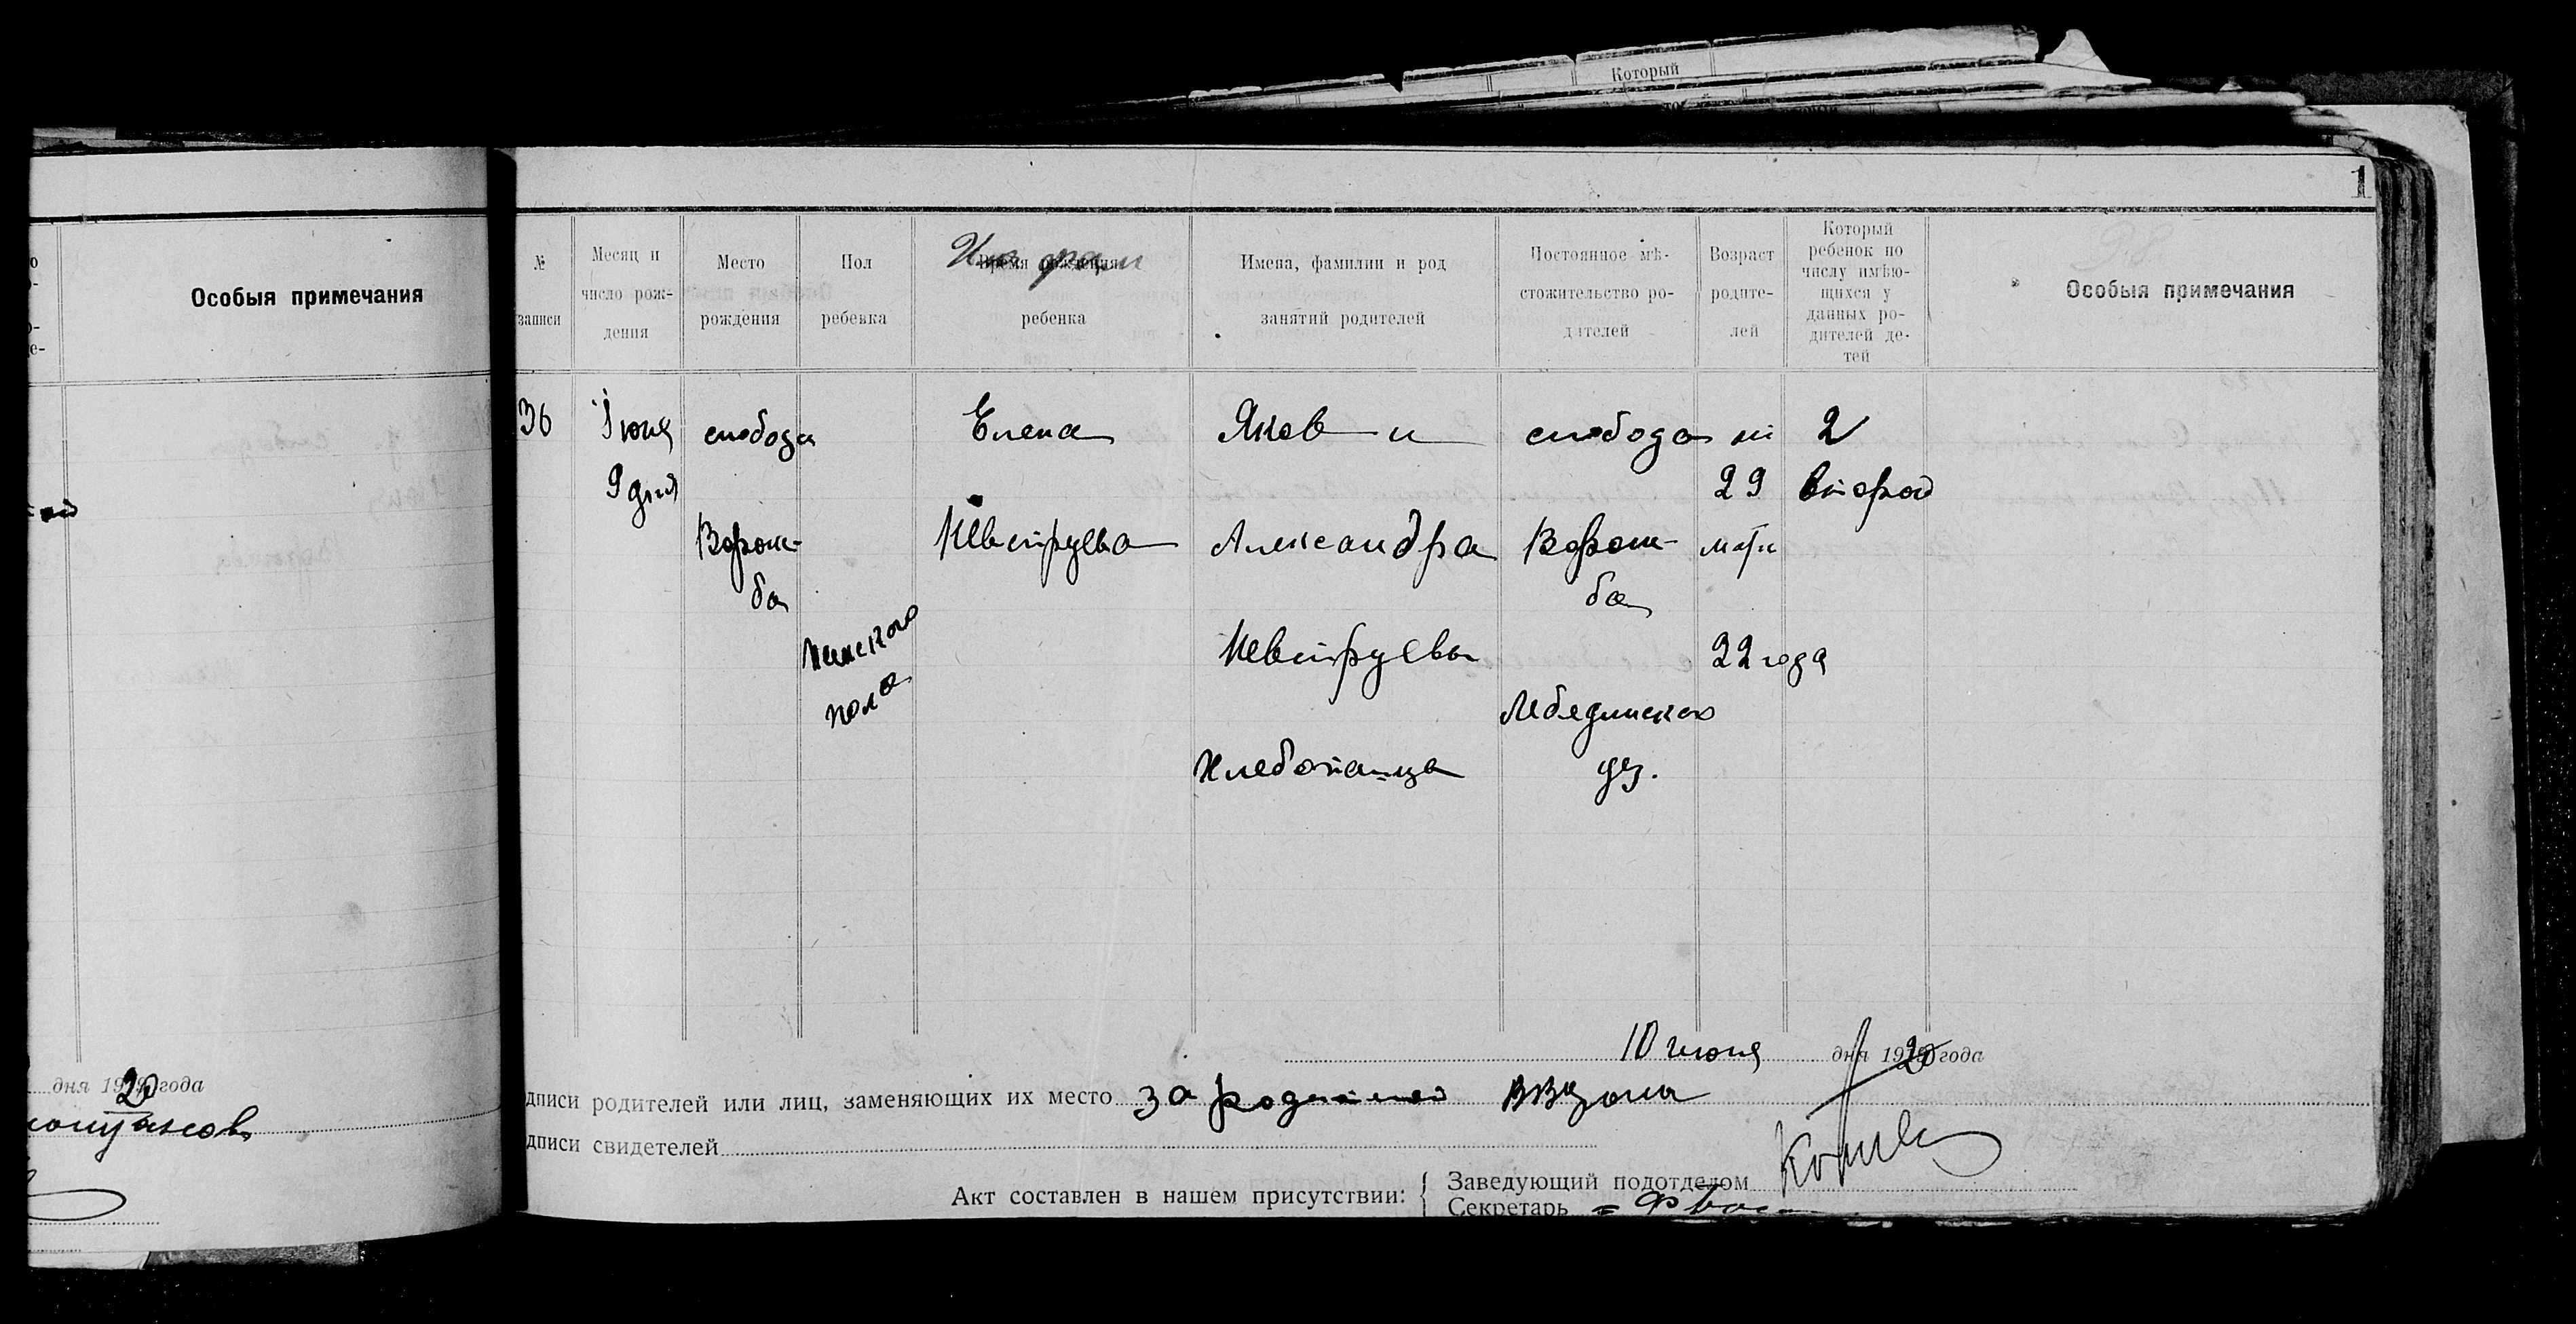 Который
1
Особыя примечания
№ записи
Месяц и число рож-дения
Место рождения
Пол ребенка
Имя фам
Время рождения ребенка
Имена, фамилии и род занятий родителей
Постоянное мѣ-стожительство ро-дителей
Возраст родите-лей
Который ребенок по числу имѣю-щихся у данных ро-дителей де-тей
Особыя примечания
36
Июня
9 дня
слобода
Ворож-
ба
женскаго
пола
Елена
Невструева
Яков и
Александра
Невструевы
Хлебопашца
слобода
Ворож-
ба
Лебединскаго
уез.
29
мати
22 года
2
второй
10 июня дня 1920 года
дня 1920 года
дписи родителей или лиц, заменяющих их место за родителей
дписи свидетелей
Акт составлен в нашем присутствии:
Заведующий подотделом
Секретарь